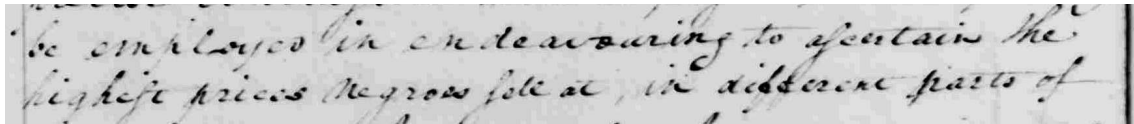 be employed in endeavouring to ascertain the
highest prices Negroes sell at, in different parts of